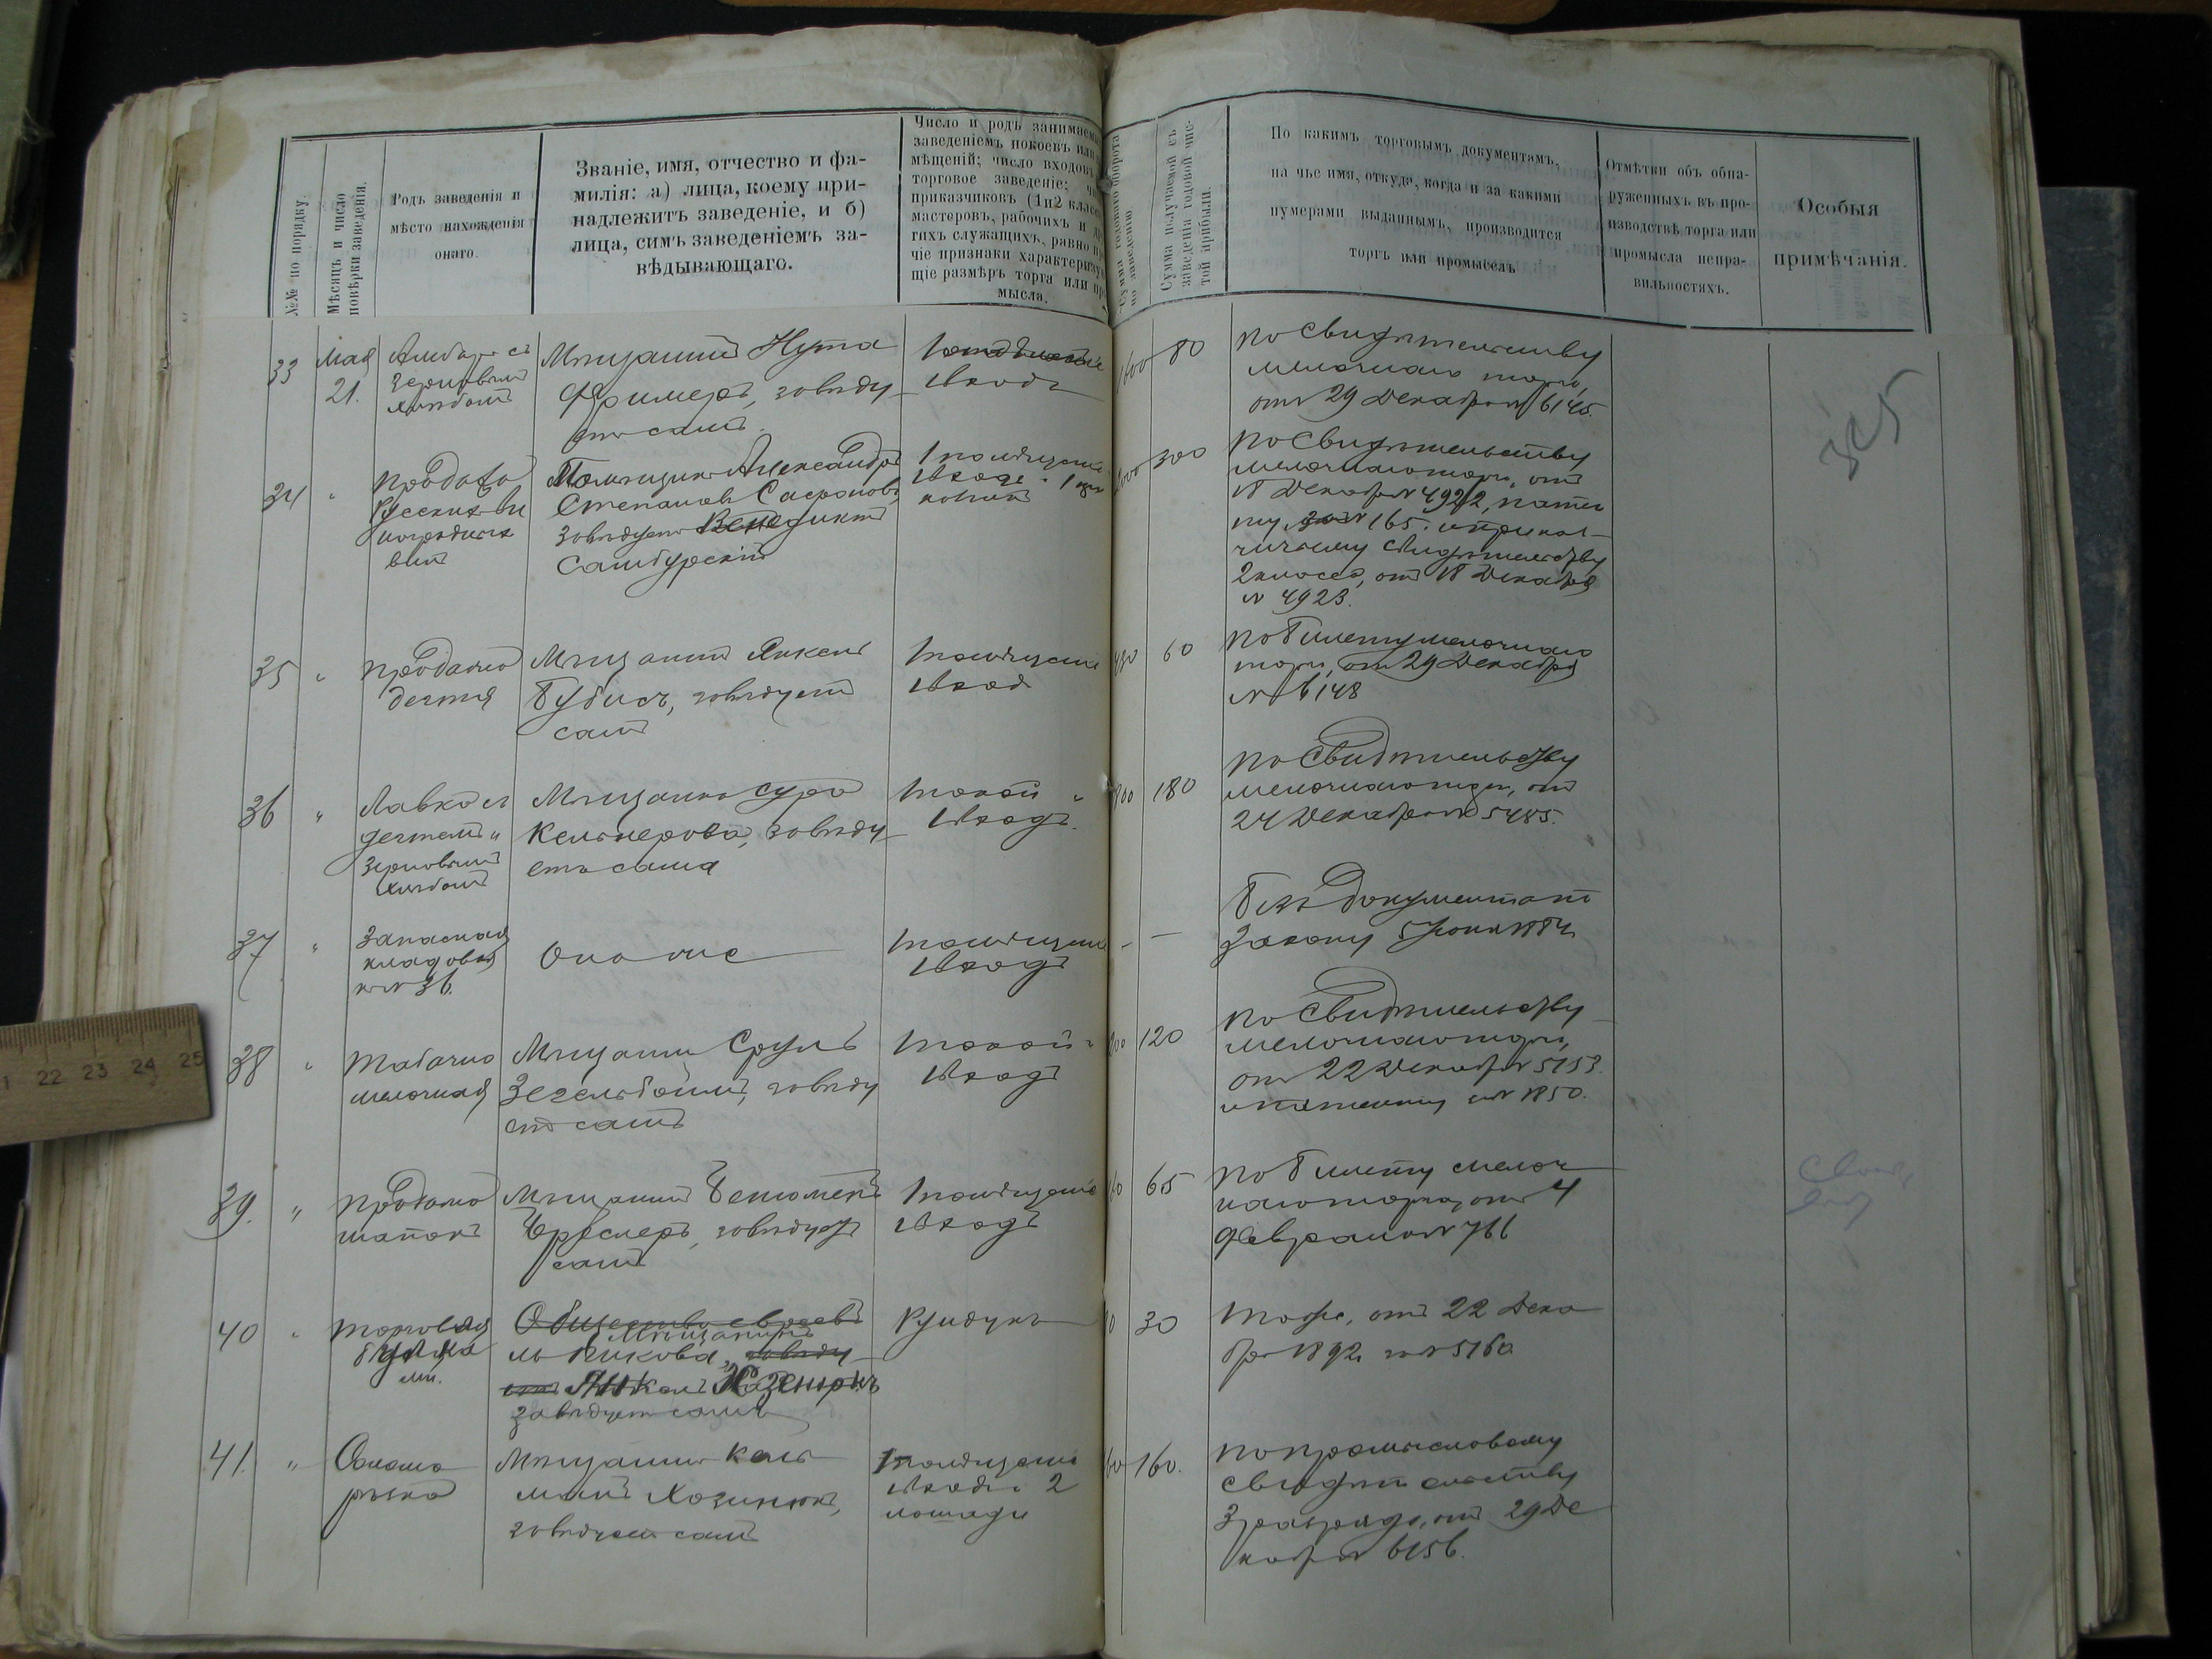 №№ по порядку.
Мѣсяцъ и число
повѣрки заведенія.
Родъ заведенія и
мѣсто нахожденія
онаго.
Званіе, имя, отчество и фа-
милія: а) лица, коему при-
надлежитъ заведеніе, и б)
лица, симъ заведеніемъ за-
вѣдывающаго.
Число и родъ занимаем
заведеніемъ покоевъ или
мѣщеній; число входовъ
торговое заведеніе;
приказчиковъ (1 и 2 клас
мастеровъ, рабочихъ и
гихъ служащихъ, равно
чіе признаки характериз
щіе размѣръ торга или
мысла.
Сумма годоваго оборота
по заведенію
Сумма получаемой съ
заведенія годовой чис-
той прибыли.
По какимъ торговымъ документамъ,
на чье имя, откуда, когда и за какими
нумерами выданнымъ, производится
торгъ или промыселъ
Отмѣтки объ обна-
руженныхъ въ про-
изводствѣ торга или
промысла непра-
вильностяхъ.
Особыя
примѣчанія.
33
Мая
21.
Амбаръ съ
зерновымъ
хлѣбомъ
Мѣщанинъ Нута
Фримеръ, завѣду
етъ самъ.
1 входъ
1600
80
по Свидѣтельству
мелочнаго торга,
отъ 29 Декабря № 6145.
34
"
продажа
Русскихъ ви
ноградныхъ
винъ
Помѣщикъ Александръ
Степановъ Сафоновъ
завѣдуетъ Венедиктъ
Самбурскій
1 помѣщеніе
входъ
300
по Свидѣтельству
мелочнаго торга, отъ
18 Декабря № 4922, патен
ту за № 165. и приказ-
чичьему свидѣтельству
2 класса, отъ 18 Декабря
№ 4923.
35
"
продажа
дегтя
Мѣщанинъ Янкель
Бубисъ, завѣдуетъ
самъ
1 помѣщеніе
1 входъ
60
по билету мелочнаго
торга, отъ 29 Декабря
№ 6148
36
"
Лавка съ
дегтемъ и
зерновымъ
хлѣбомъ
Мѣщанка Сура
Кельнерова, завѣду
етъ сама
1 покой
1 входъ.
900
180
по Свидѣтельству
мелочнаго торга, отъ
24 Декабря № 5485.
37
"
Запасная
кладовая
къ № 36.
Она же
1 помѣщеніе
1 входъ
-
-
Безъ документа по
закону 5 Іюня 1884
38
"
табачно
мелочная
Мѣщанинъ Сруль
Зегельбоймъ, завѣду
етъ самъ
1 покой
1 входъ
120
по Свидѣтельству
мелочнаго торга,
отъ 22 Декабря № 5153.
и патенту за № 1850.
39.
"
продажа
шапокъ
Мѣщанинъ
завѣдуетъ
самъ
1 помѣщеніе
1 входъ
65
по билету мелоч
наго торга, отъ 4
Февраля № 766
40
"
торговля
Общество евреевъ
Мѣщанинъ
завѣду
етъ Янкель
завѣдуетъ самъ
Рундукъ
30
тоже, отъ 22 Дека
бря 1892 за № 5160
41.
"
Мѣщанинъ Каль
манъ Хазинюкъ,
завѣдуетъ самъ
1 помѣщеніе
1 входъ 2
лошади
160.
по промысловому
свидѣтельству
3 разряда, отъ 29 Де
кабря № 6156.
22 23 24 25